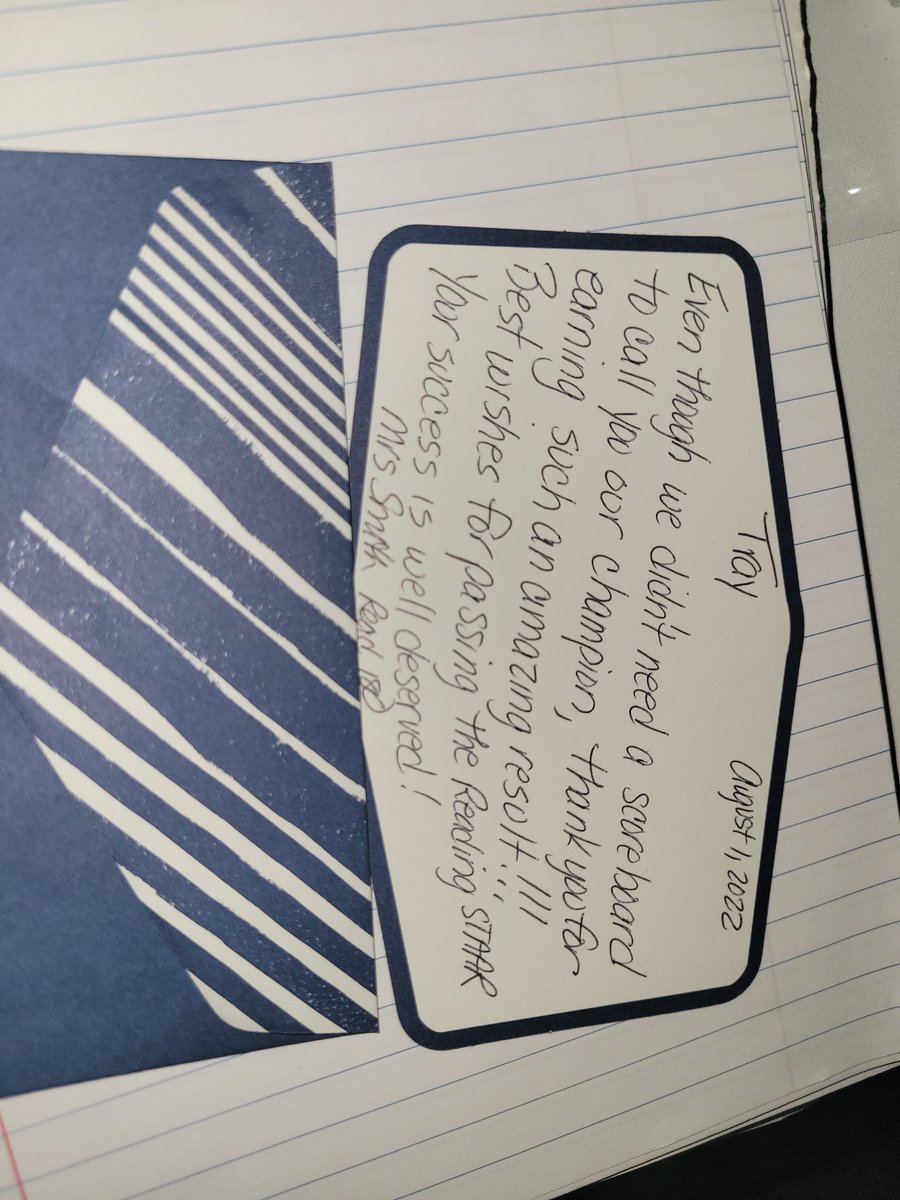 August 1, 2022
Tray
Even though we didn't need a scoreboard
to call you our champion, thank you for
earning such an amazing result!!!
Best wishes for passing the Reading STAAR
Your success is well deserved!
Mrs Smith Read 180